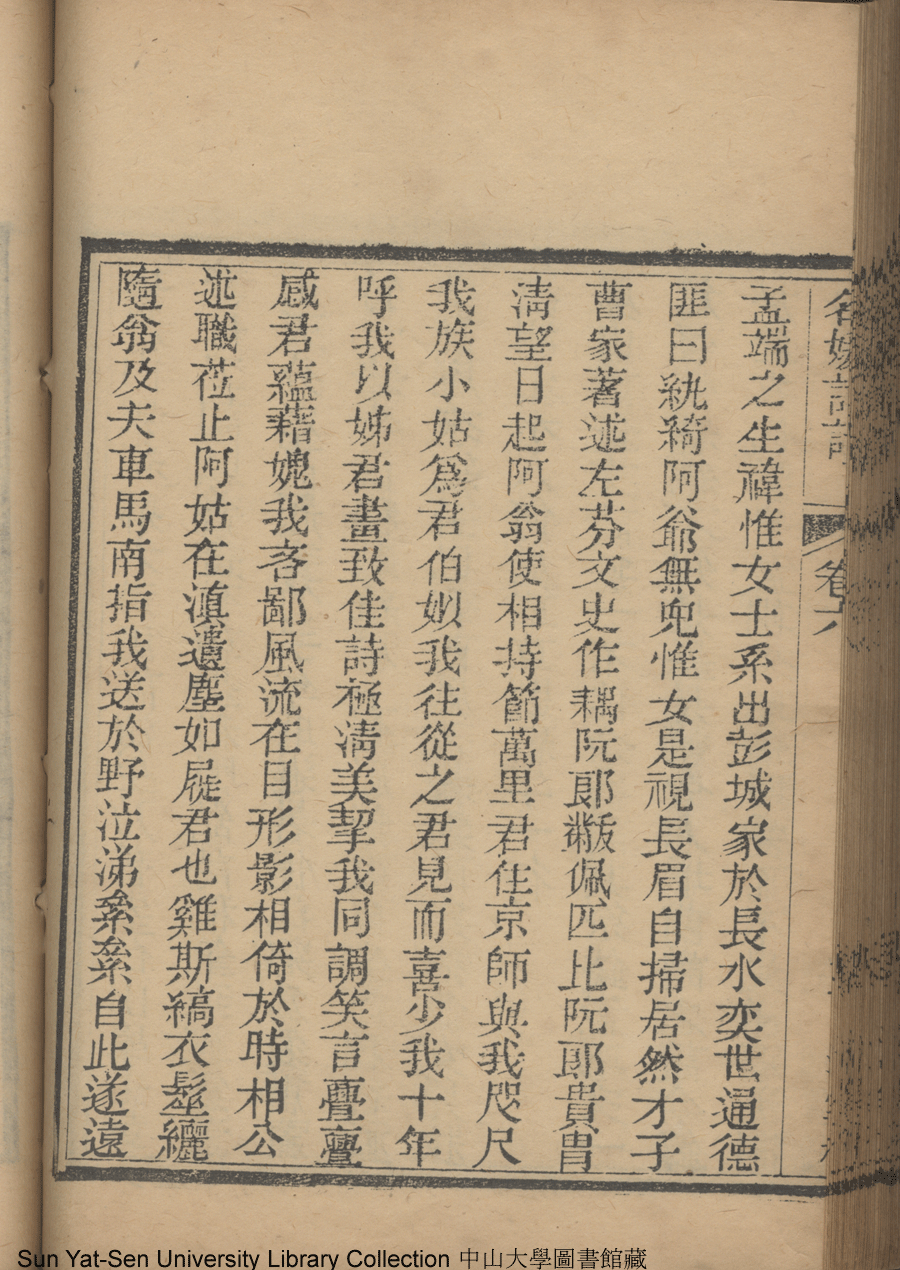 名媛詩話 卷六
孟端之生禕惟女士系出彭城家於長水奕世通德
匪曰紈綺阿爺無兒惟女是視長眉自掃居然才子
曹家著述左芬文史作耦阮郎黻佩匹比阮郎貴胄
清望日起阿翁使相持節萬里君住京師與我咫尺
我族小姑爲君伯姒我往從之君見而喜少我十年
呼我以姊君畫致佳詩極淸美挈我同調笑言亹亹
感君蘊藉媿我吝鄙風流在目形影相倚於時相公
述職莅止阿姑在滇遺塵如屣君也雞斯縞衣髽纚
隨翁及夫車馬南指我送於野泣涕絫絫自此遂遠
Sun Yat-Sen University Library Collection 中山大學圖書館藏